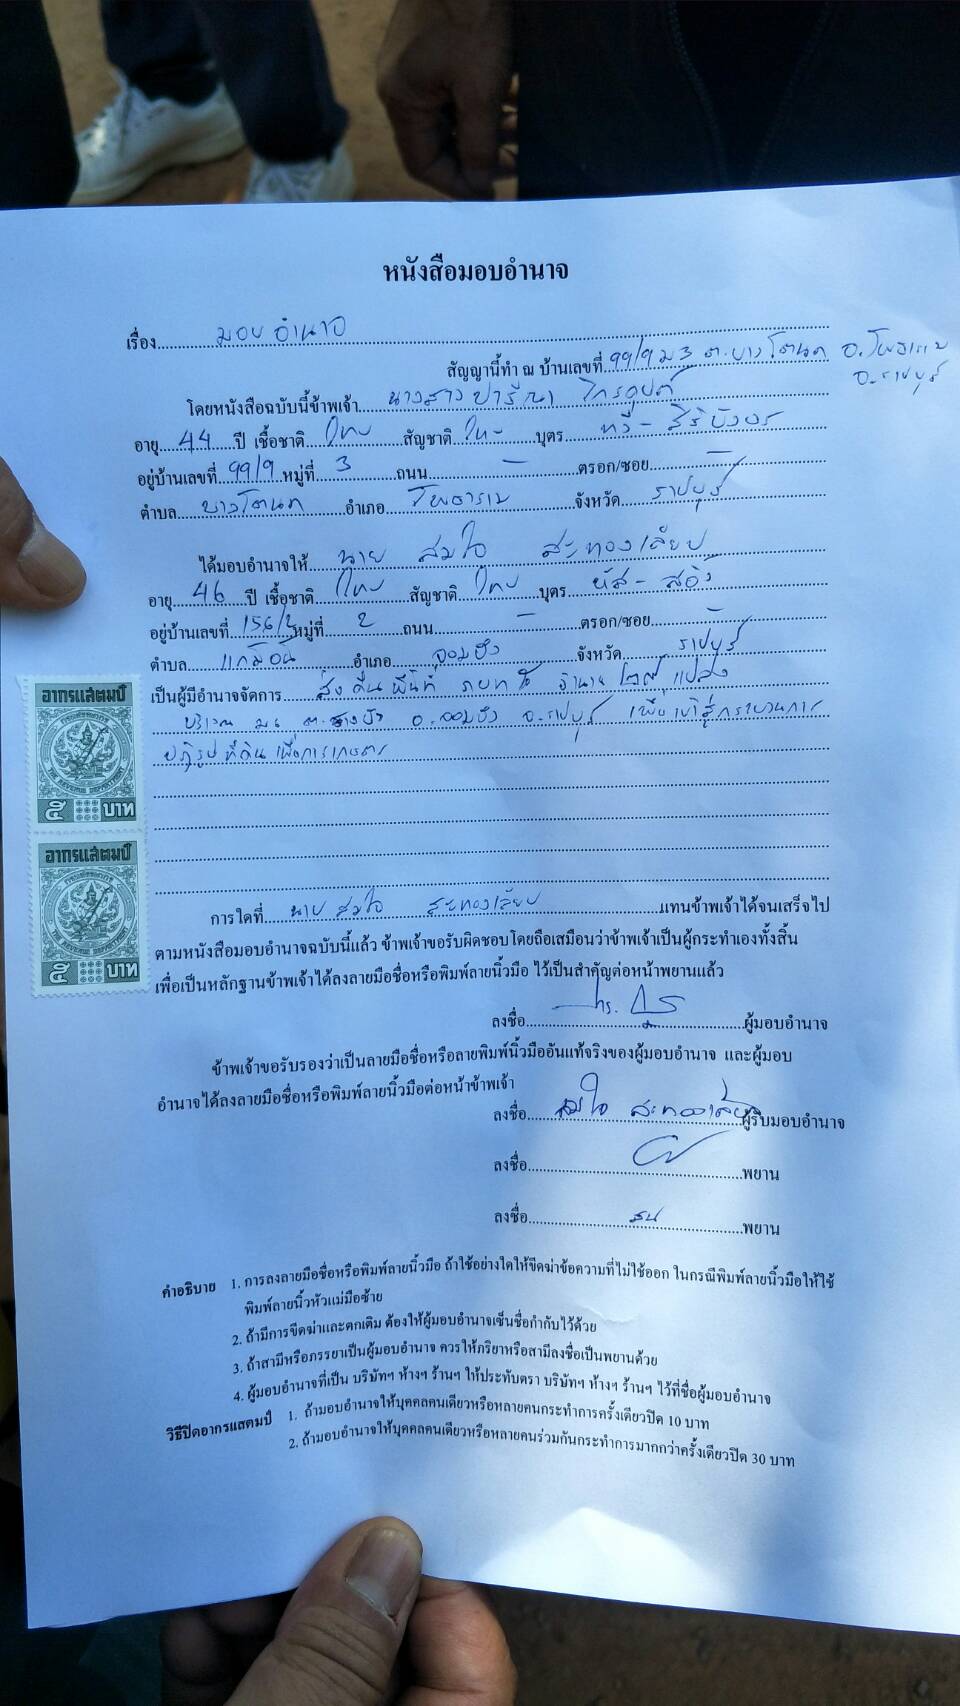 หนังสือมอบอำนาจ
เรื่อง มอบอำนาจ
สัญญานี้ทำ ณ บ้านเลขที่ 99/9 ม 3 ต.บางโตนด อ.โพธาราม
จ.ราชบุรี
โดยหนังสือฉบับนี้ข้าพเจ้า นางสาวปารีณา ไกรคุปต์
อายุ 44 ปี เชื้อชาติ ไทย สัญชาติ ไทย บุตร ทวี - สิริบังอร
อยู่บ้านเลขที่ 99/9 หมู่ที่ 3 ถนน - ตรอก/ซอย -
ตำบล บางโตนด อำเภอ โพธาราม จังหวัด ราชบุรี
ได้มอบอำนาจให้ นาย สมใจ สะทองเลียบ
อายุ 46 ปี เชื้อชาติ ไทย สัญชาติ ไทย บุตร
อยู่บ้านเลขที่ 156/2 หมู่ที่ 2 ถนน - ตรอก/ซอย -
ตำบล แก้มอ้น อำเภอ จอมบึง จังหวัด ราชบุรี
เป็นผู้มีอำนาจจัดการ ส่งคืนพื้นที่ ภบท 5 จำนวน ๒๙ แปลง
บริเวณ ม๖ ต.รางบัว อ.จอมบึง จ.ราชบุรี เพื่อเข้าสู่กระบวนการ
ปฏิรูปที่ดินเพื่อการเกษตร
อากรแสตมป์
๕ บาท
อากรแสตมป์
๕ บาท
การใดที่ นาย สมใจ สะทองเลียบ แทนข้าพเจ้าได้จนเสร็จไป
ตามหนังสือมอบอำนาจฉบับนี้แล้ว ข้าพเจ้าขอรับผิดชอบโดยถือเสมือนว่าข้าพเจ้าเป็นผู้กระทำเองทั้งสิ้น
เพื่อเป็นหลักฐานข้าพเจ้าได้ลงลายมือชื่อหรือพิมพ์ลายนิ้วมือ ไว้เป็นสำคัญต่อหน้าพยานแล้ว
ลงชื่อ ผู้มอบอำนาจ
ข้าพเจ้าขอรับรองว่าเป็นลายมือชื่อหรือลายพิมพ์นิ้วมืออันแท้จริงของผู้มอบอำนาจ และผู้มอบ
อำนาจได้ลงลายมือชื่อหรือพิมพ์ลายนิ้วมือต่อหน้าข้าพเจ้า
ลงชื่อ สมใจ สะทองเลียบ ผู้รับมอบอำนาจ
ลงชื่อ พยาน
ลงชื่อ พยาน
คำอธิบาย 1. การลงลายมือชื่อหรือพิมพ์ลายนิ้วมือ ถ้าใช้อย่างใดให้ขีดฆ่าข้อความที่ไม่ใช้ออก ในกรณีพิมพ์ลายนิ้วมือให้ใช้
พิมพ์ลายนิ้วหัวแม่มือซ้าย
2. ถ้ามีการขีดฆ่าและตกเติม ต้องให้ผู้มอบอำนาจเซ็นชื่อกำกับไว้ด้วย
3. ถ้าสามีหรือภรรยาเป็นผู้มอบอำนาจ ควรให้ภริยาหรือสามีลงชื่อเป็นพยานด้วย
4. ผู้มอบอำนาจที่เป็น บริษัทฯ ห้างฯ ร้านฯ ให้ประทับตรา บริษัทฯ ห้างฯ ร้านฯ ไว้ที่ชื่อผู้มอบอำนาจ
วิธีปิดอากรแสตมป์ 1. ถ้ามอบอำนาจให้บุคคลคนเดียวหรือหลายคนกระทำการครั้งเดียวปิด 10 บาท
2. ถ้ามอบอำนาจให้บุคคลคนเดียวหรือหลายคนร่วมกันกระทำการมากกว่าครั้งเดียวปิด 30 บาท